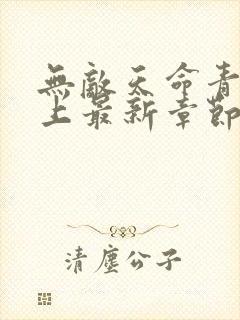 無敵天命青
上最新章節
清塵公子